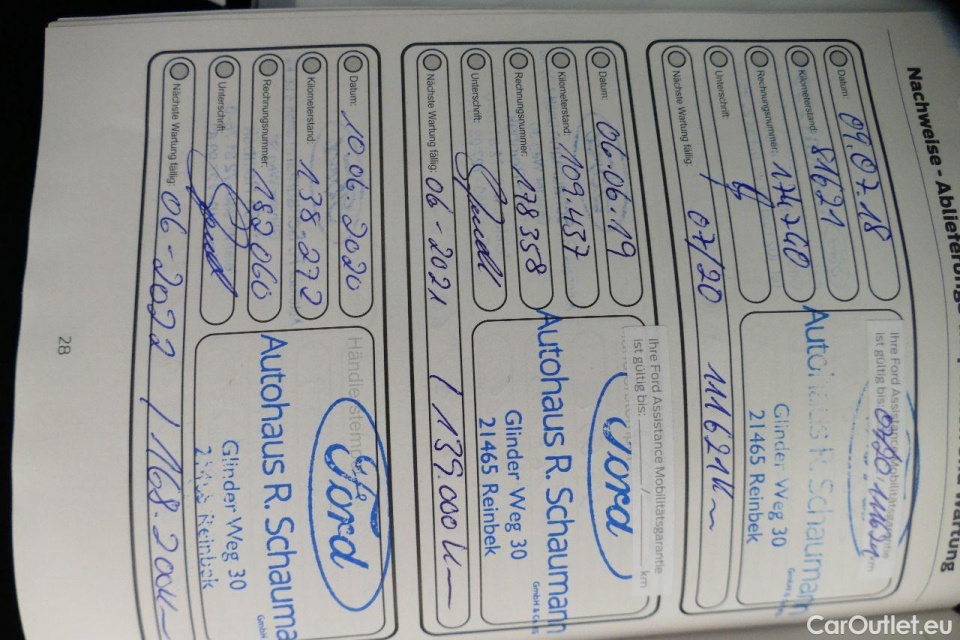 Nachweise - Ablieferungs
und Wartung
Datum: 09.07.18
Kilometerstand: 81621
Rechnungsnummer: 174740
Unterschrift:
Nächste Wartung fällig: 07/20 111621 Km
Ihre Ford Assistance Mobilitätsgarantie
ist gültig bis:
km
Autohaus R. Schaumann
GmbH &
Glinder Weg 30
21465 Reinbek
Datum: 06.06.19
Kilometerstand: 109.457
Rechnungsnummer: 178358
Unterschrift:
Nächste Wartung fällig: 06-2021 / 139.000 Km
Ihre Ford Assistance Mobilitätsgarantie
ist gültig bis: / km
Ford
Autohaus R. Schaumann
GmbH & Co.KG
Glinder Weg 30
21465 Reinbek
Datum: 10.06.2020
Kilometerstand: 138.272
Rechnungsnummer: 182060
Unterschrift:
Nächste Wartung fällig: 06-2022 / 168.200 Km
Händlerstempel
Ford
Autohaus R. Schauma
GmbH
Glinder Weg 30
Reinbek
28
CarOutlet.eu